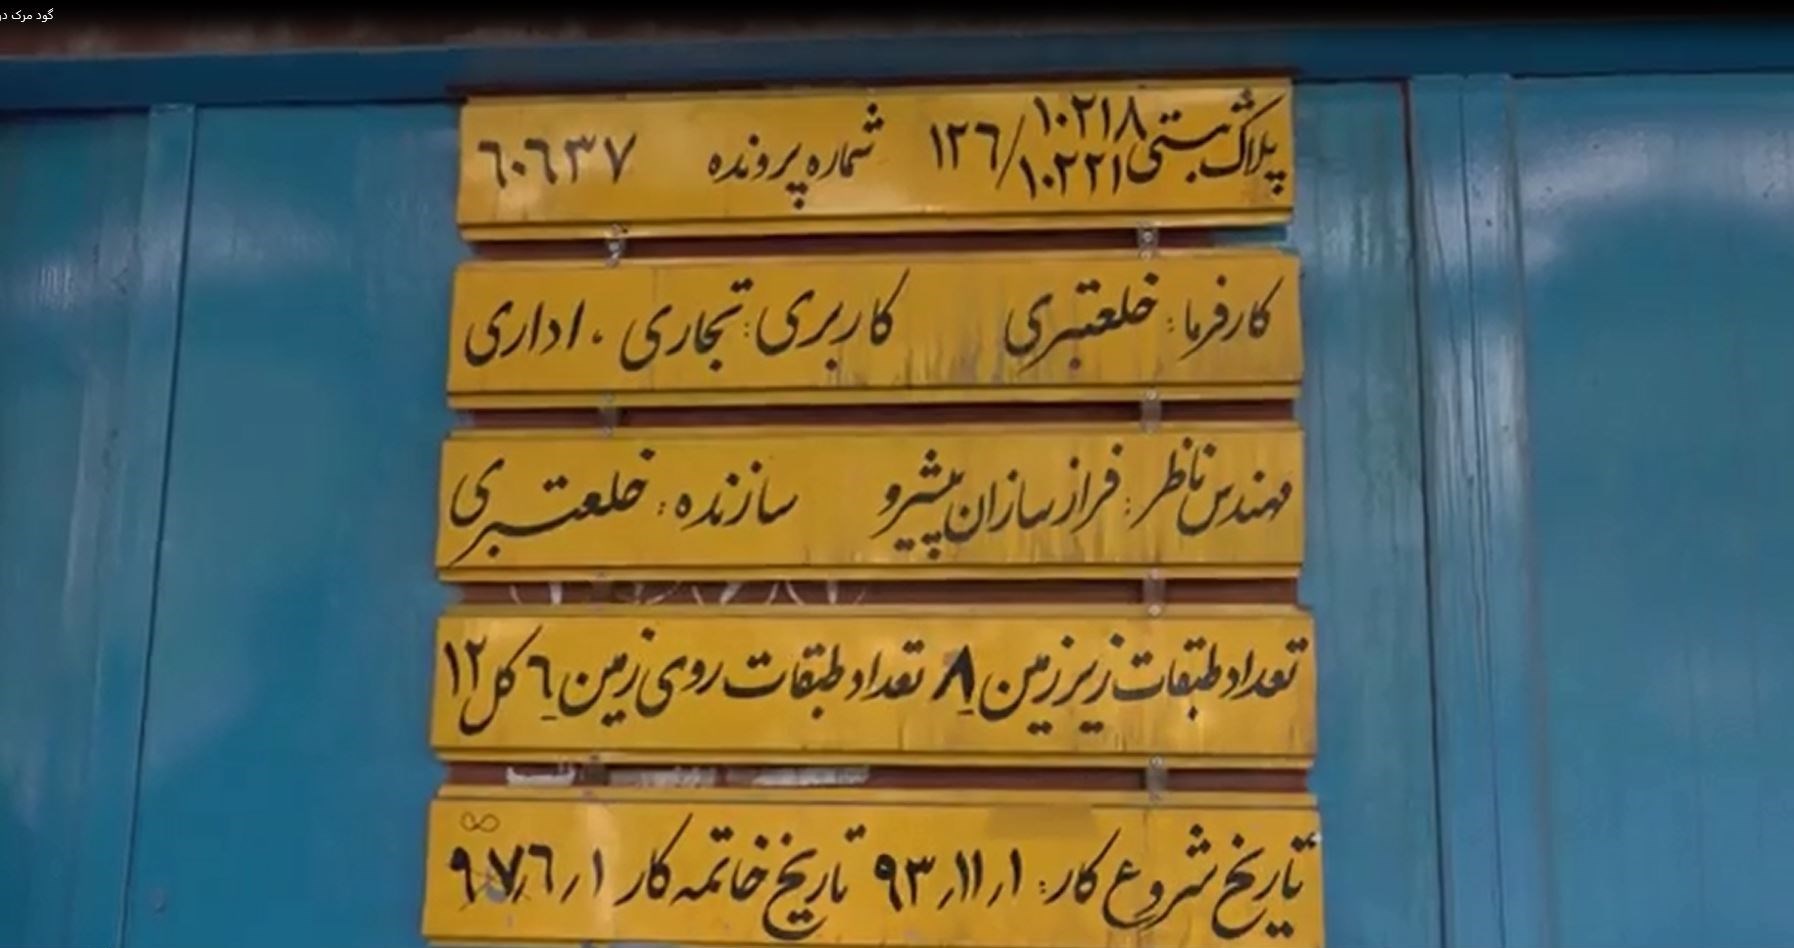 گود مرک
پلاک ثبتی ۱۰۲۱۸ ۱۰۲۲۱/۱۲۶ شماره پرونده ۶۰۶۳۷
کارفرما: خلعتبری کاربری: تجاری، اداری
مهندس ناظر: فراز سازان پیشرو سازنده: خلعتبری
تعداد طبقات زیرزمین ۸ تعداد طبقات روی زمین ۶ کل ۱۲
تاریخ شروع کار: ۹۳/۱۱/۱ تاریخ خاتمه کار ۹۷/۶/۱